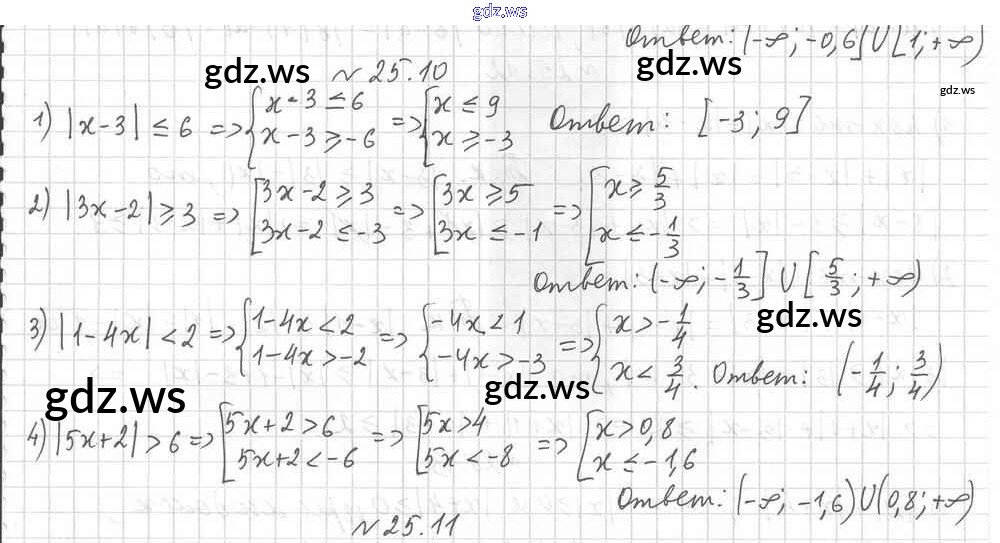 gdz.ws
Ответ: (-∞; -0,6] U [1; +∞)
gdz.ws № 25.10
gdz.ws
1) |x-3| ≤ 6 => { x-3 ≤ 6 ; x-3 ≥ -6 => { x ≤ 9 ; x ≥ -3 Ответ: [-3; 9]
2) |3x-2| ≥ 3 => [ 3x-2 ≥ 3 ; 3x-2 ≤ -3 => [ 3x ≥ 5 ; 3x ≤ -1 => [ x ≥ 5/3 ; x ≤ -1/3
Ответ: (-∞; -1/3] U [5/3; +∞)
gdz.ws
3) |1-4x| < 2 => { 1-4x < 2 ; 1-4x > -2 => { -4x < 1 ; -4x > -3 => { x > -1/4 ; x < 3/4. Ответ: (-1/4; 3/4)
gdz.ws gdz.ws
4) |5x+2| > 6 => [ 5x+2 > 6 ; 5x+2 < -6 => [ 5x > 4 ; 5x < -8 => [ x > 0,8 ; x ≤ -1,6
Ответ: (-∞; -1,6) U (0,8; +∞)
№ 25.11